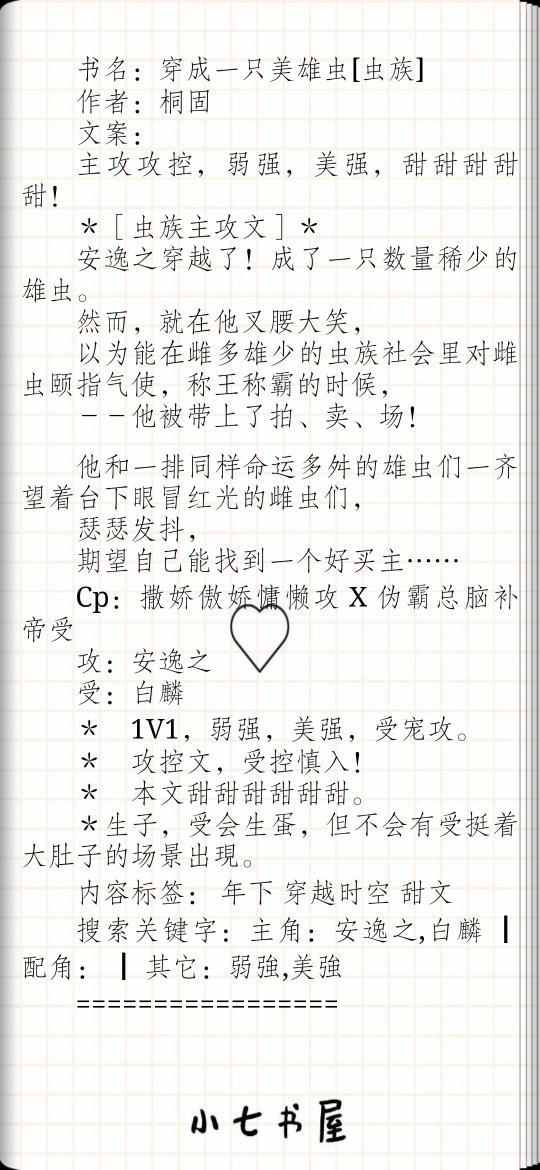 书名：穿成一只美雄虫[虫族]
作者：桐固
文案：
主攻攻控，弱强，美强，甜甜甜甜
甜！
＊［虫族主攻文］＊
安逸之穿越了！成了一只数量稀少的
雄虫。
然而，就在他叉腰大笑，
以为能在雌多雄少的虫族社会里对雌
虫颐指气使，称王称霸的时候，
－－他被带上了拍、卖、场！
他和一排同样命运多舛的雄虫们一齐
望着台下眼冒红光的雌虫们，
瑟瑟发抖，
期望自己能找到一个好买主……
Cp：撒娇傲娇慵懒攻 X 伪霸总脑补
帝受
攻：安逸之
受：白麟
＊ 1V1，弱强，美强，受宠攻。
＊ 攻控文，受控慎入！
＊ 本文甜甜甜甜甜甜。
＊生子，受会生蛋，但不会有受挺着
大肚子的场景出現。
内容标签： 年下 穿越时空 甜文
搜索关键字：主角：安逸之,白麟 ┃
配角： ┃ 其它：弱強,美強
=================
小七书屋